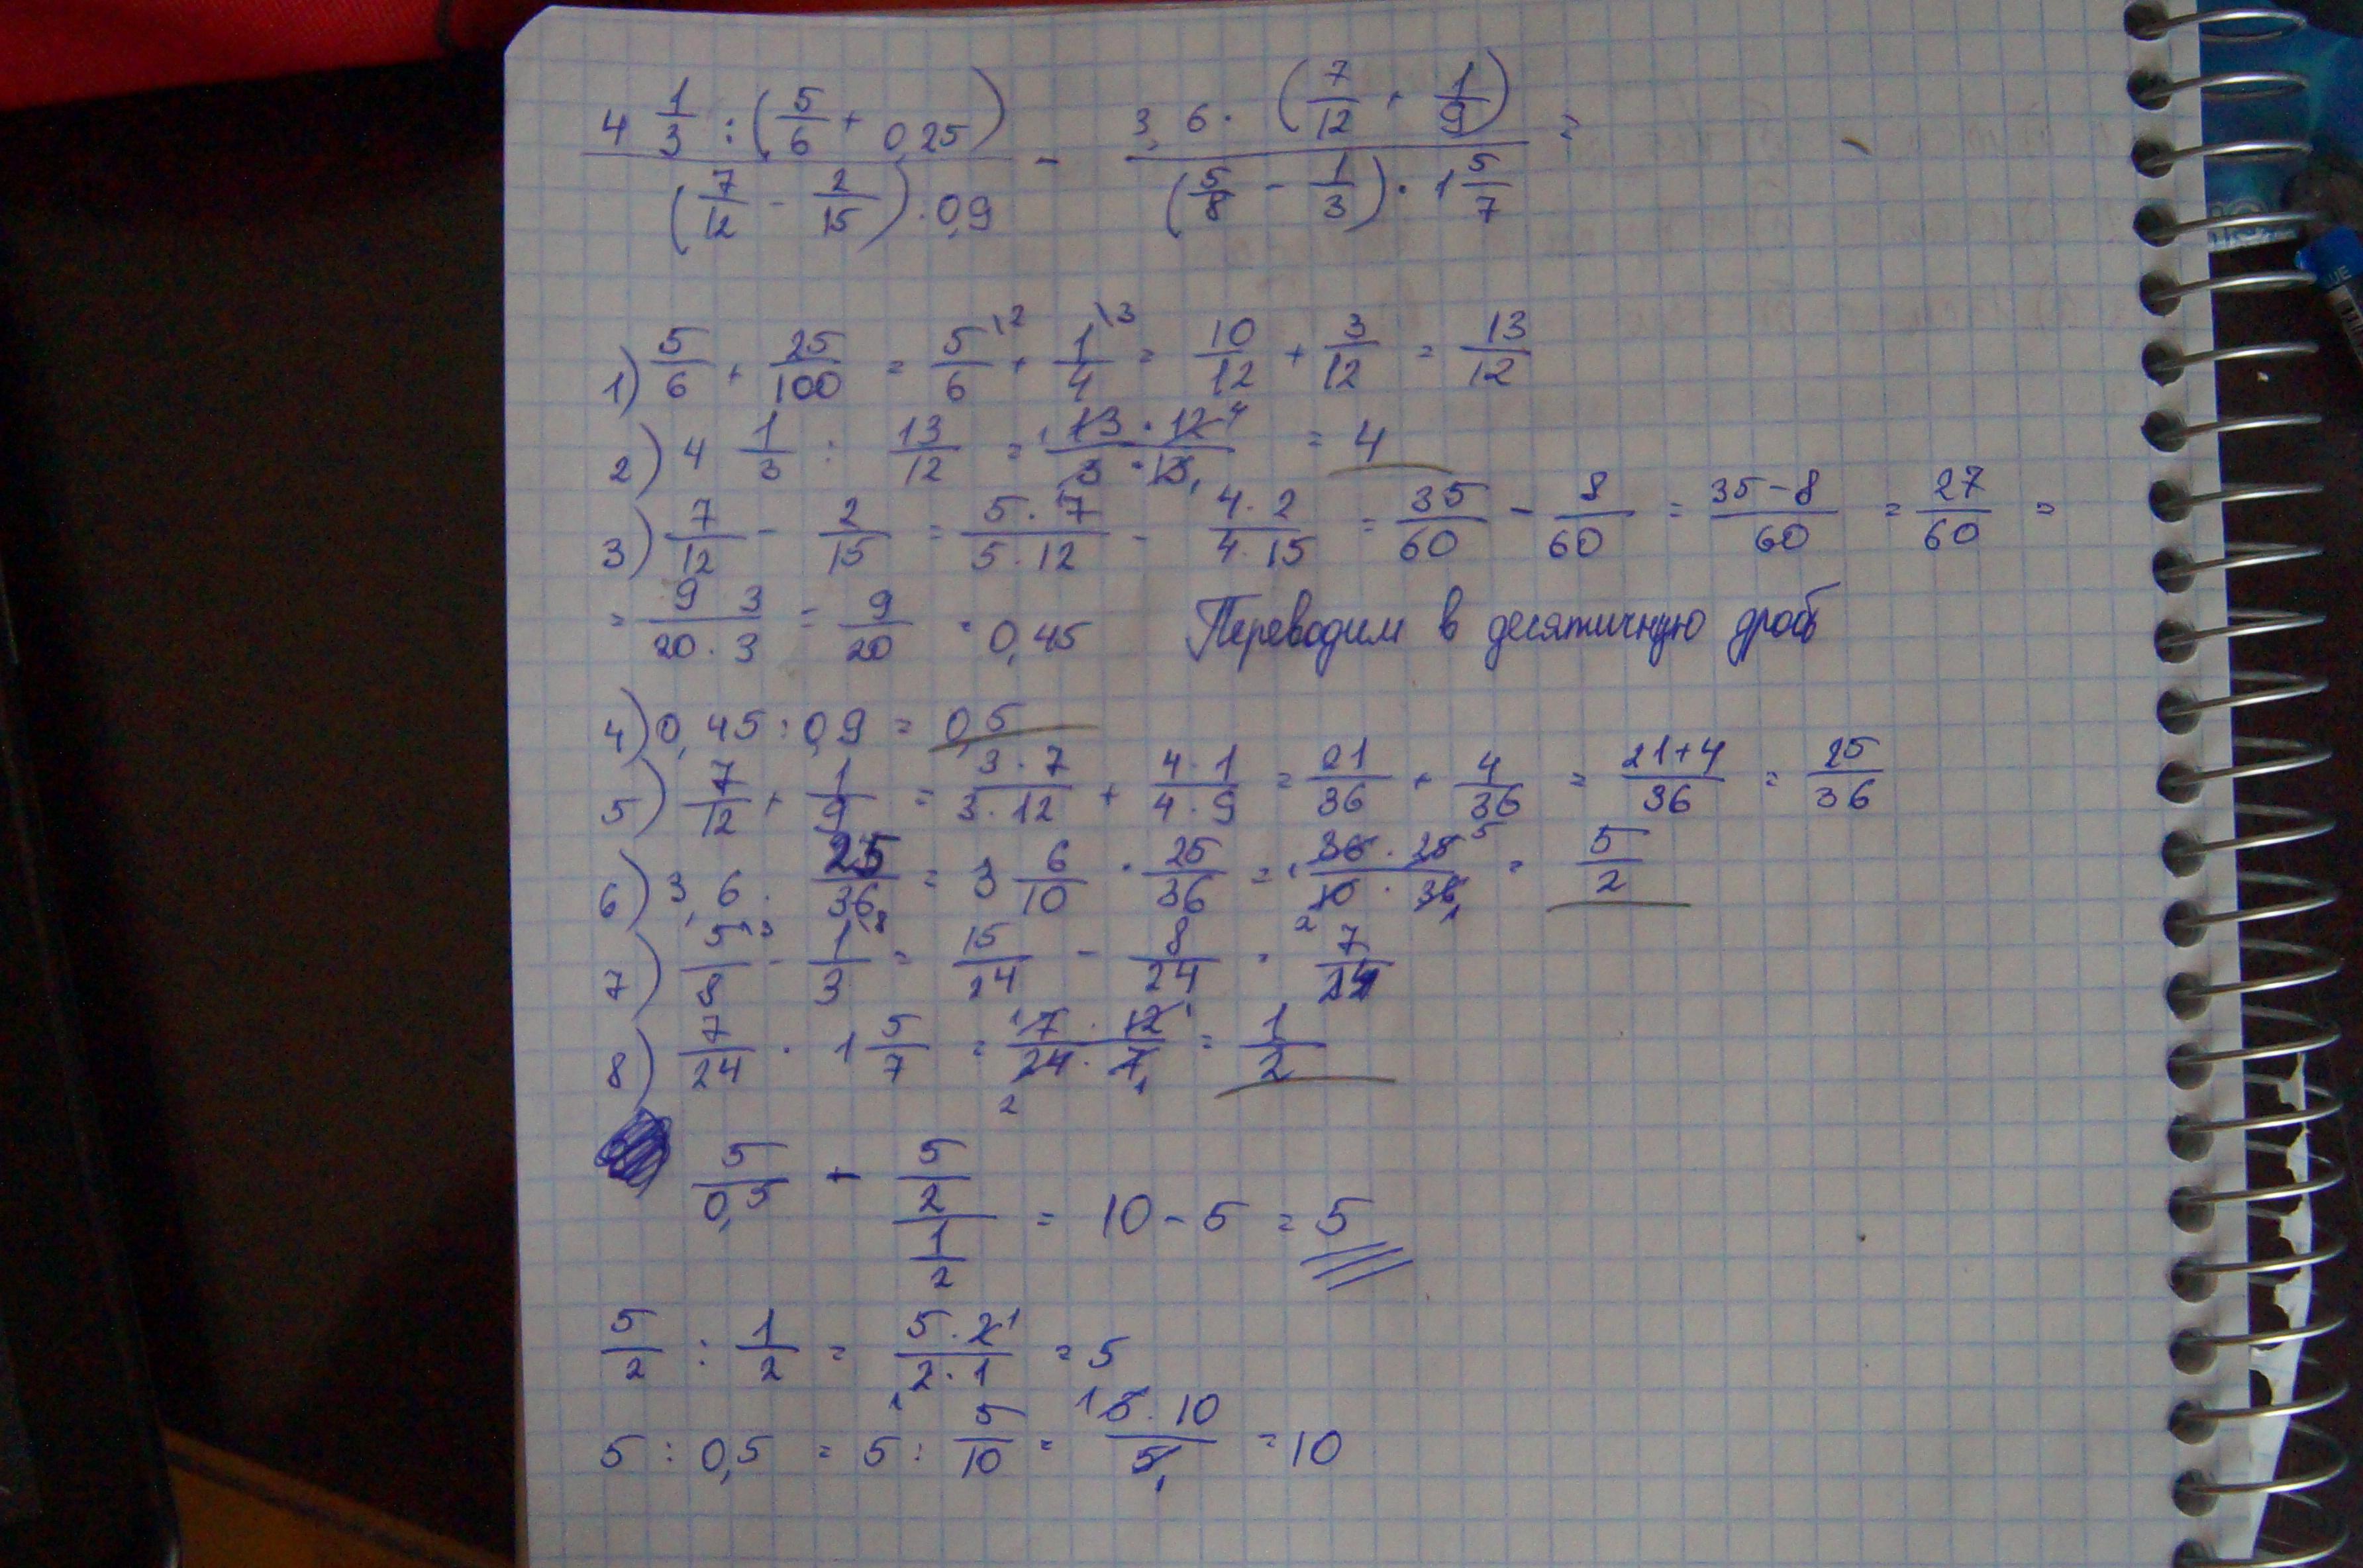 4 1/3 : (5/6 + 0,25) / (7/12 - 2/15) · 0,9 - 3,6 · (7/12 + 1/9) / (5/8 - 1/3) · 1 5/7 =
1) 5/6 + 25/100 = 5/6 \2 + 1/4 \3 = 10/12 + 3/12 = 13/12
2) 4 1/3 : 13/12 = 13 · 12 / 3 · 13 = 4
3) 7/12 - 2/15 = 5 · 7 / 5 · 12 - 4 · 2 / 4 · 15 = 35/60 - 8/60 = 35-8 / 60 = 27/60 =
= 9 · 3 / 20 · 3 = 9/20 = 0,45 Переводим в десятичную дробь
4) 0,45 : 0,9 = 0,5
5) 7/12 + 1/9 = 3 · 7 / 3 · 12 + 4 · 1 / 4 · 9 = 21/36 + 4/36 = 21+4 / 36 = 25/36
6) 3,6 · 25/36 = 3 6/10 · 25/36 = 36 · 25 / 10 · 36 = 5/2
7) 5/8 \3 - 1/3 \8 = 15/24 - 8/24 = 7/24
8) 7/24 · 1 5/7 = 7 · 12 / 24 · 7 = 1/2
5/0,5 - 5/2 / 1/2 = 10 - 5 = 5
5/2 : 1/2 = 5 · 2 / 2 · 1 = 5
5 : 0,5 = 5 : 5/10 = 5 · 10 / 5 = 10